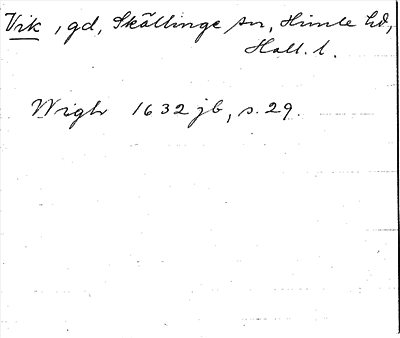 Vik, gd, Skällinge sn, Himle hd,
Hall. l.
Wigh 1632 jb, s. 29.